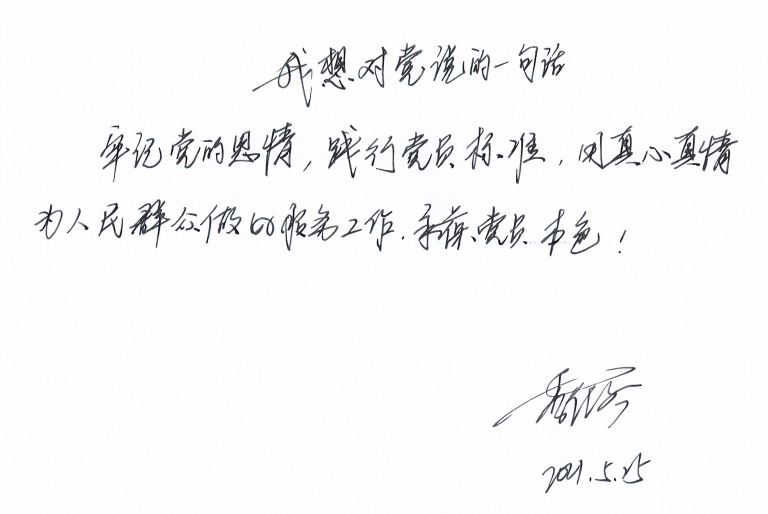 我想对党说的一句话
牢记党的恩情，践行党员标准，用真心真情
为人民群众做好服务工作，永葆党员本色！
2021.5.25